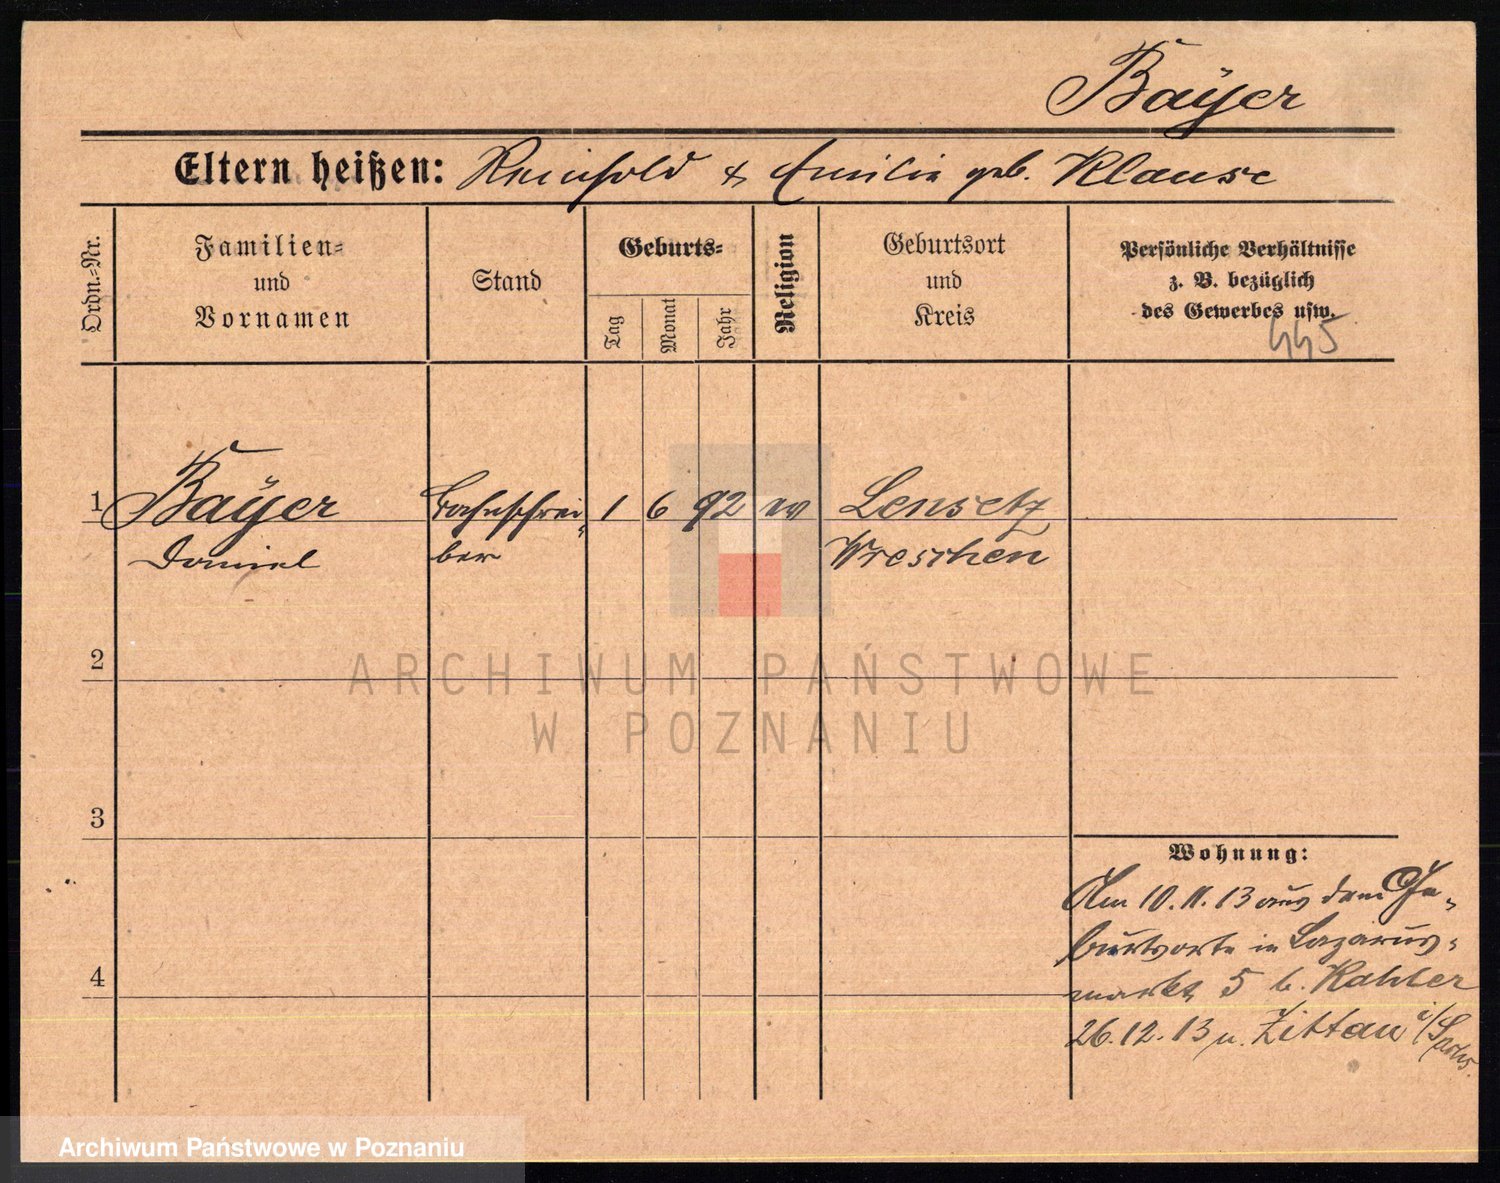 Baÿer
Eltern heißen: Reinhold & Emilie geb. Klause
Ordn.-Nr.
Familien-
und
Vornamen
Stand
Geburts-
Tag
Monat
Jahr
Religion
Geburtsort
und
Kreis
Persönliche Verhältnisse
z. B. bezüglich
des Gewerbes usw.
445
1 Baÿer Bahnschrei- 1 6 92 ev Lensetz
Daniel ber Wreschen
2
3
4
Wohnung:
Am 10.11.13 aus dem Ge-
burtsorte in Lazarus-
markt 5 b. Kahler
26.12.13 n. Zittau i/Sachs.
ARCHIWUM PAŃSTWOWE
W POZNANIU
Archiwum Państwowe w Poznaniu